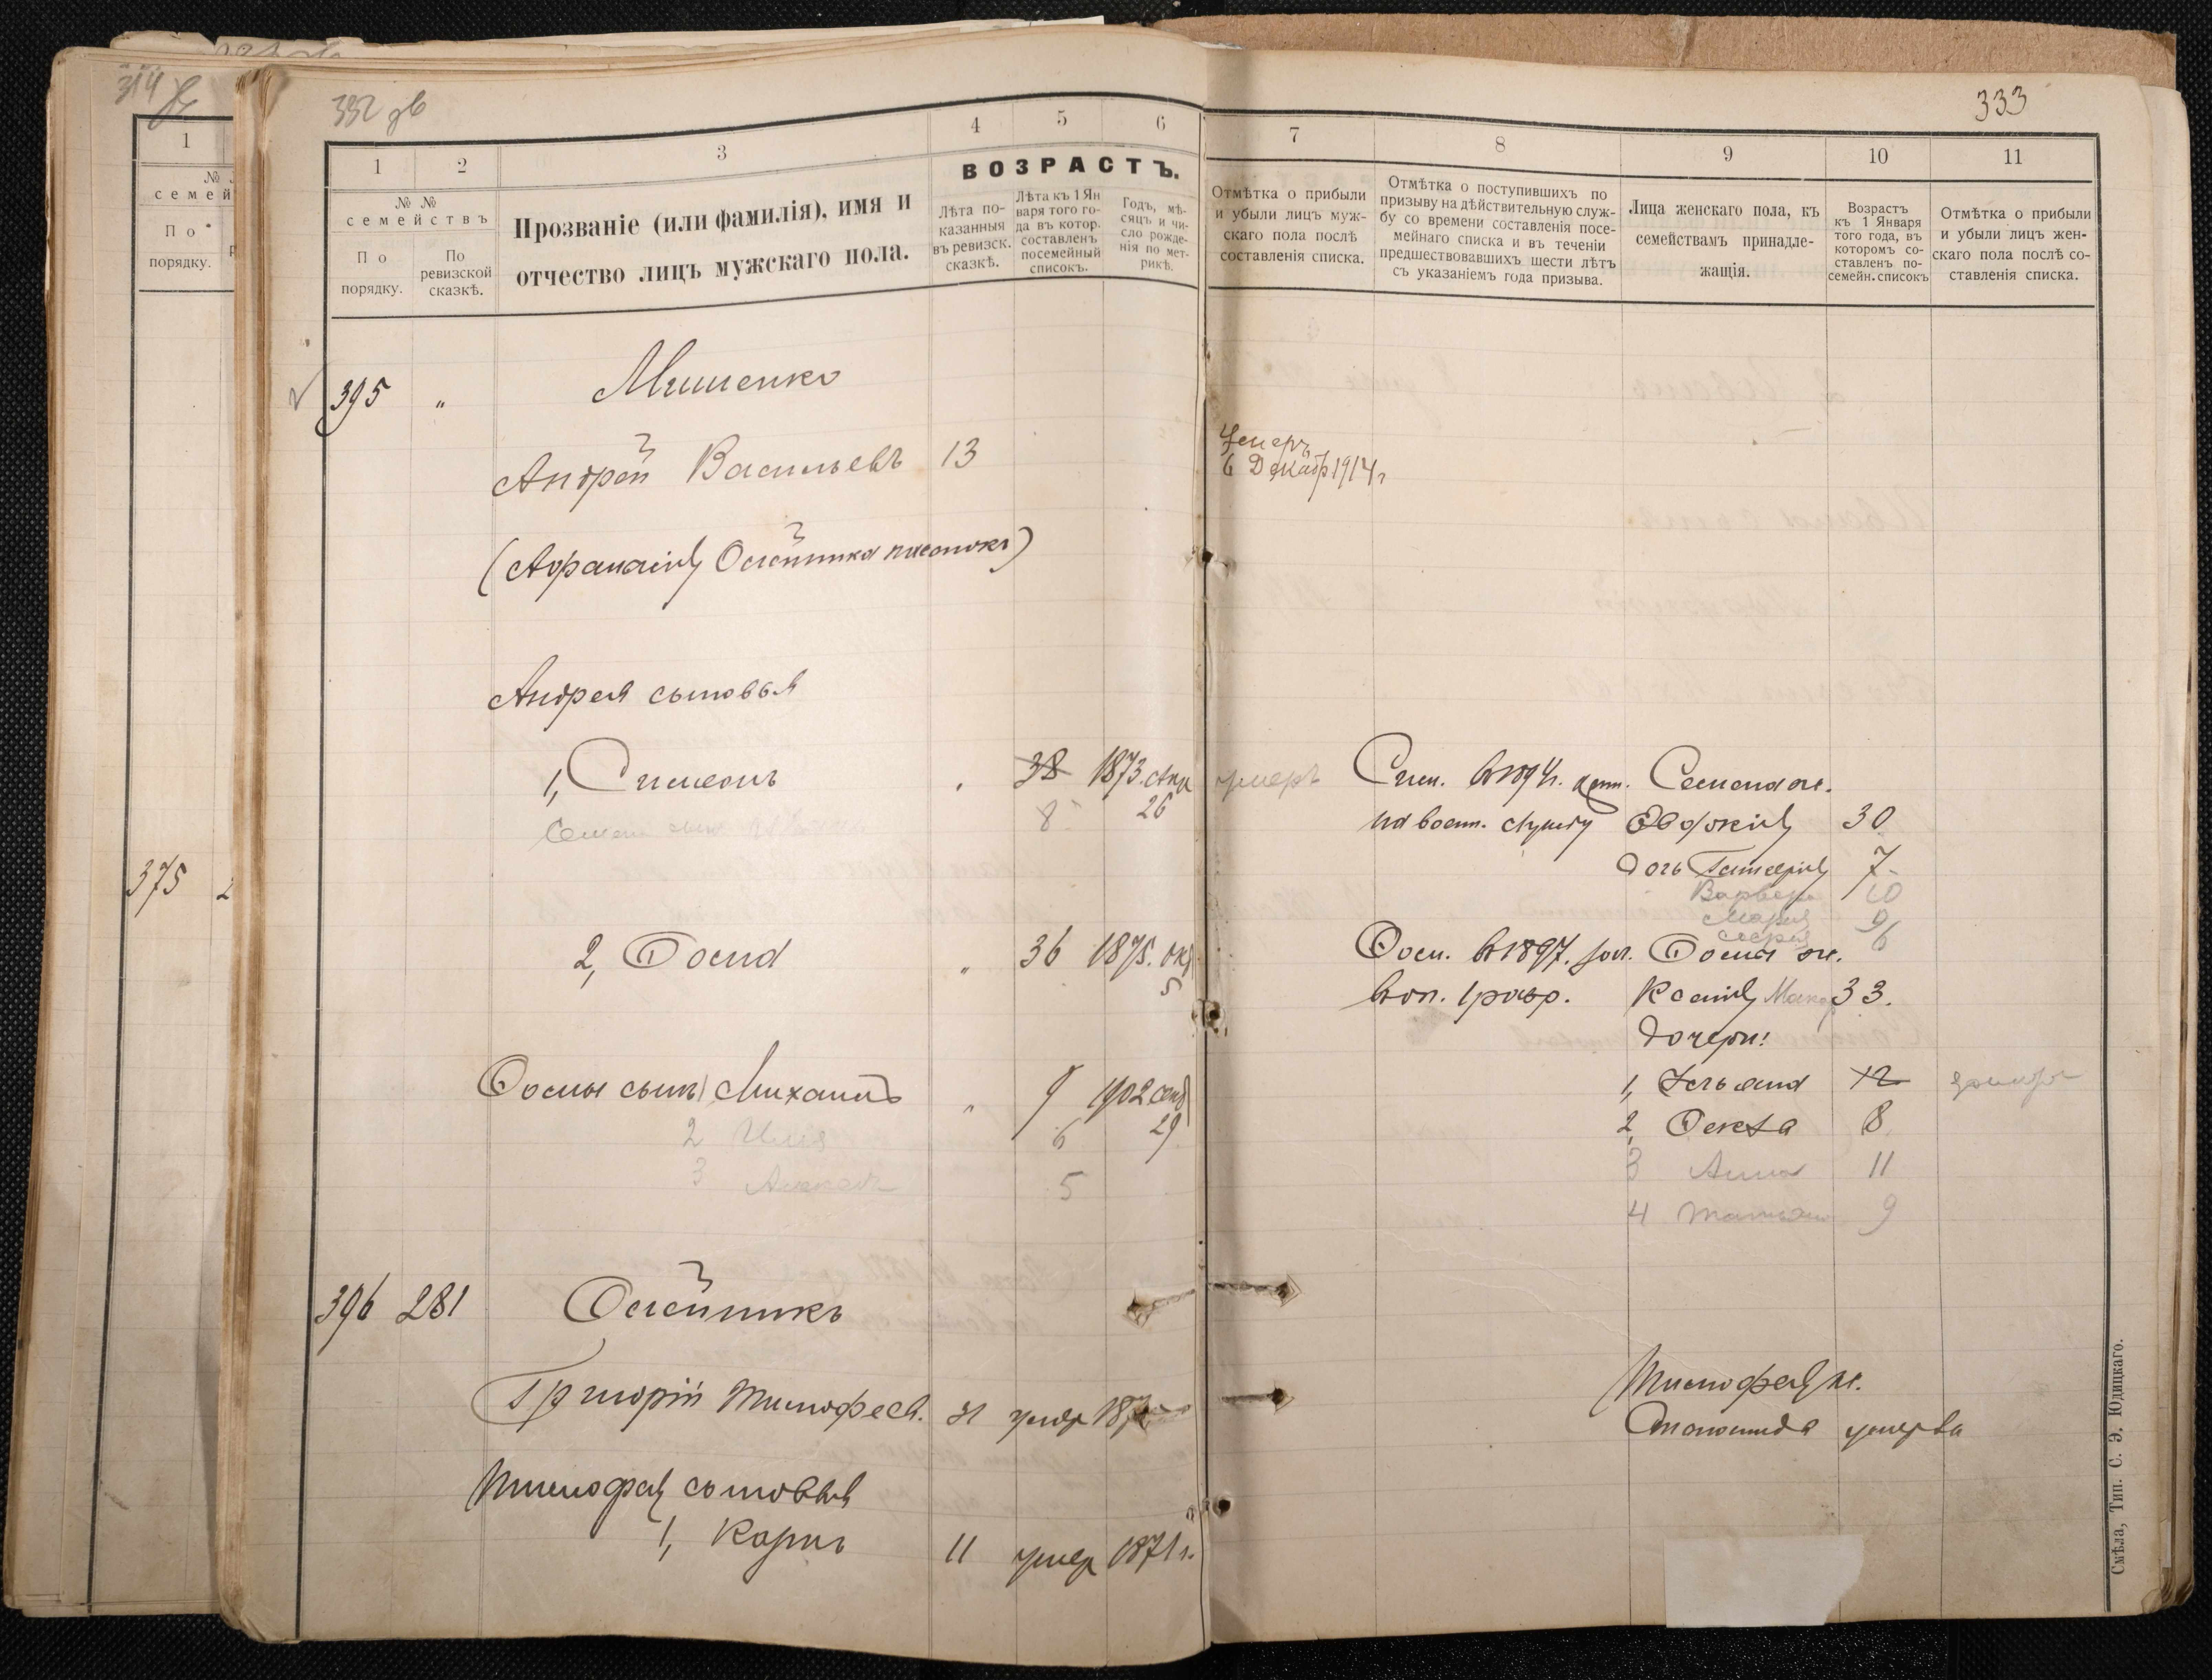 314
332 зв
333
1
№
семей
По
порядку.
375
1
2
3
4
5
6
ВОЗРАСТЪ.
№ №
семействъ
По
порядку.
По
ревизской
сказкѣ.
Прозваніе (или фамилія), имя и
отчество лицъ мужскаго пола.
Лѣта по-
казанныя
въ ревизск.
сказкѣ.
Лѣта къ 1 Ян
варя того го-
да въ котор.
составленъ
посемейный
списокъ.
Годъ, мѣ-
сяцъ и чи-
сло рожде-
нія по мет-
рикѣ.
7
8
9
10
11
Отмѣтка о прибыли
и убыли лицъ муж-
скаго пола послѣ
составленія списка.
Отмѣтка о поступившихъ по
призыву на дѣйствительную служ-
бу со времени составленія посе-
мейнаго списка и въ теченіи
предшествовавшихъ шести лѣтъ
съ указаніемъ года призыва.
Лица женскаго пола, къ
семействамъ принадле-
жащія.
Возрастъ
къ 1 Января
того года, въ
которомъ со-
ставленъ по-
семейн. списокъ
Отмѣтка о прибыли
и убыли лицъ жен-
скаго пола послѣ со-
ставленія списка.
395 " Мишенко
Андрей Васильевъ 13 Умеръ
6 Декабр 1914 г
(Афанасія Олейника пасынокъ)
Андрея сыновья
1, Симеонъ 38 1873. Апр умеръ Сим. в 1894 г. Семена ж.
26
Семена сынъ 8 на воен. службу Евфокія 30
дочь 7
Варвара 10
Мария 9
6
2, Фома " 36 1875. окт Фом. в 1897. Фомы ж.
5
в оп. 1 разр. Ксенія 33.
дочери:
Фомы сынъ 1 Михаилъ " 9 1902 сент 1, Ульяна 12
29
2 Илія 6 2, Фекла 8
3 Алексей 5 3 Анна 11
4 Татьяна 9
396 281 Олейникъ
Григорій Тимофеев. умер Тимофея ж.
умерла
Тимофея сыновья
1, Карпъ 11 умер 1871 г.
Смѣла, Тип. С. Э. Юдицкаго.